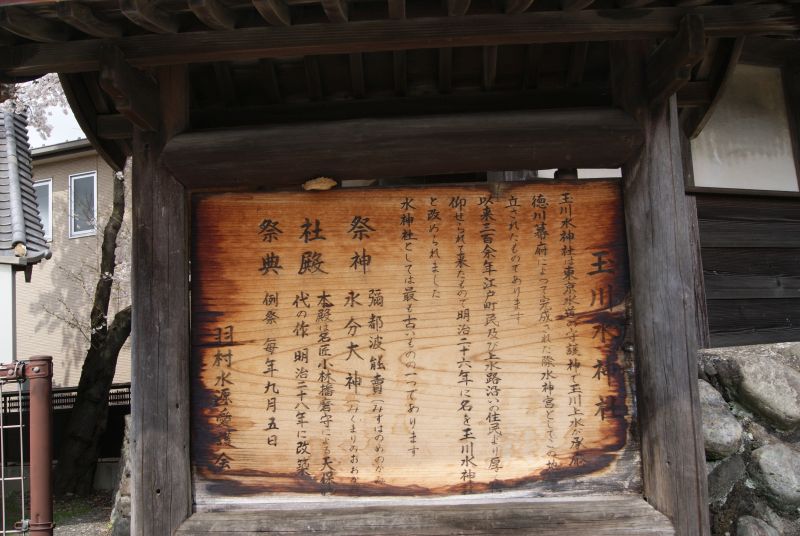 玉川水神社
玉川水神社は東京水道の守護神で玉川上水が承応
徳川幕府によつて完成された際水神宮としてこの地
立されたものであります
以来三百余年江戸町民及び上水路沿いの住民より厚
仰せられて来たもので明治二十六年に名を玉川水神社
と改められました
水神社としては最も古いものの一つであります
祭神 彌都波能賣(みずはのめのかみ
水分大神(みくまりのおおか
社殿 本殿は名匠小林播磨守による天保
代の作 明治二十八年に改築
祭典 例祭 毎年九月五日
羽村水源愛護会